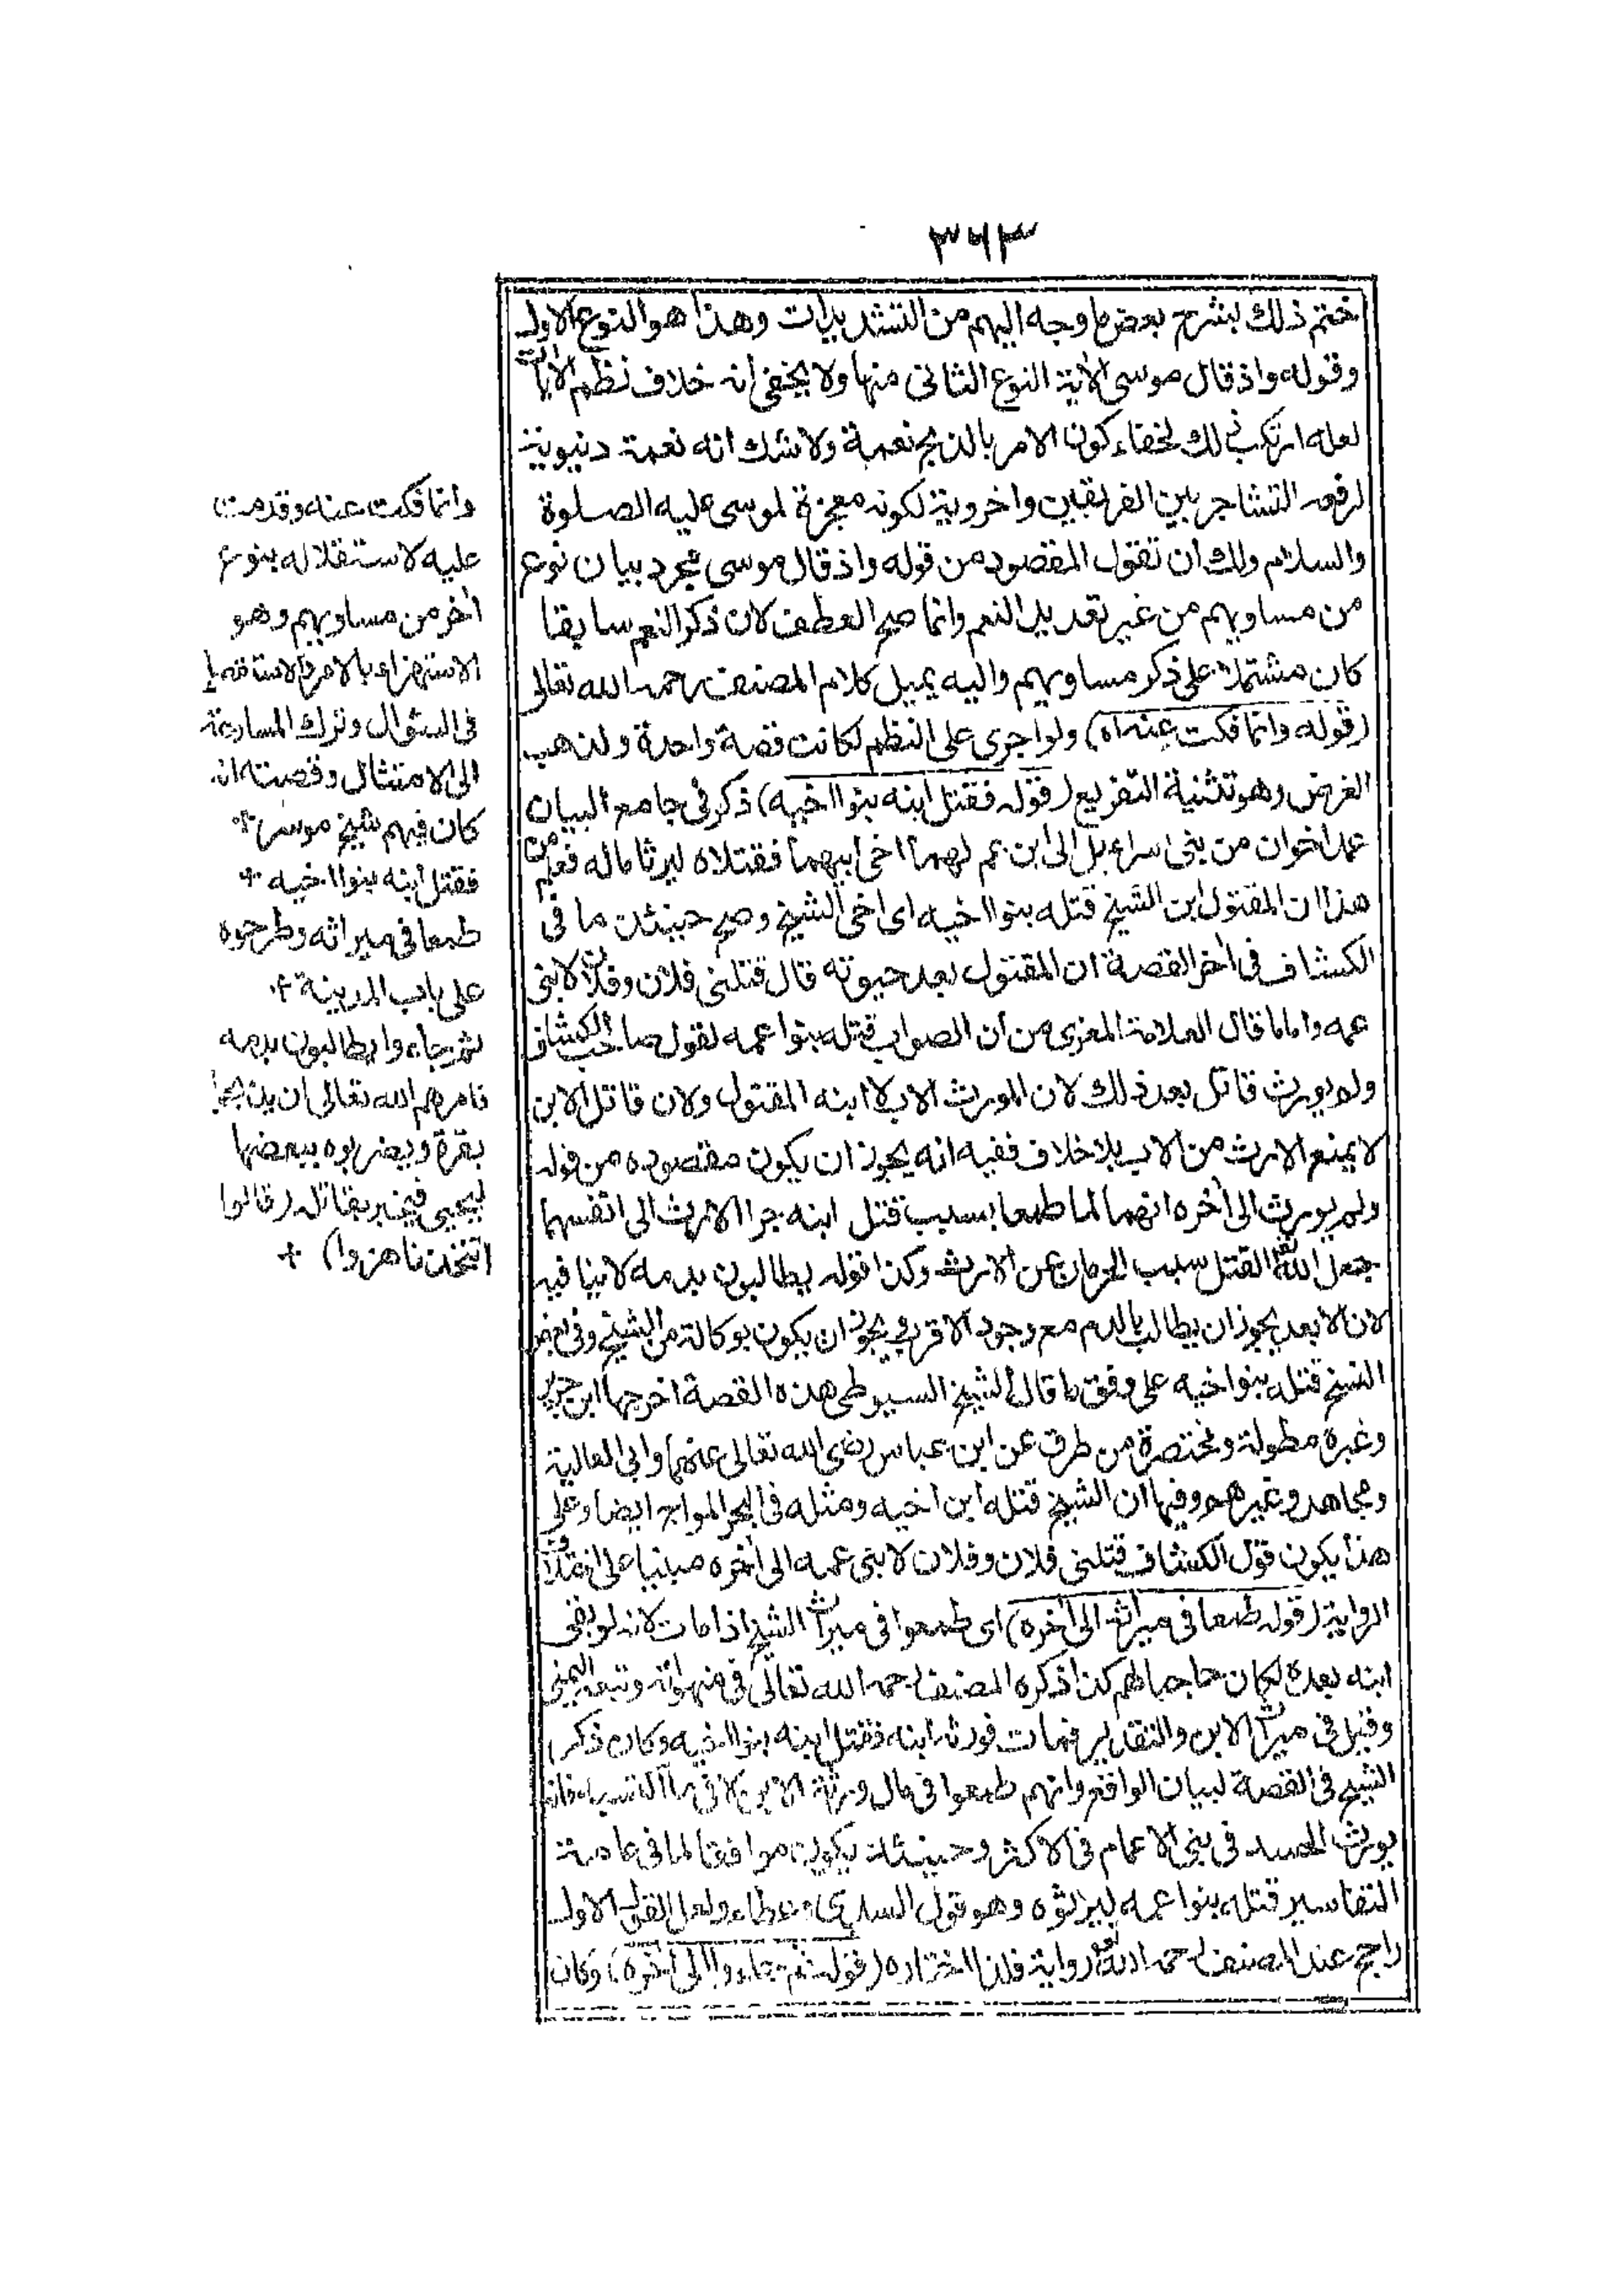 ٣٦٣
ختم ذلك بشرح بعض ما وجه اليهم من التشديدات وهذا هو النوع الاول
وقوله واذ قال موسى الآية النوع الثانى منها ولا يخفى انه خلاف نظم الآيات
لعله ارتكب ذلك لخفاء كون الامر بالذبح نعمة ولا شك انه نعمة دنيوية
لرفعه التشاجر بين الفريقين واخروية لكونه معجزة لموسى عليه الصلوة
والسلام ولك ان تقول المقصود من قوله واذ قال موسى مجرد بيان نوع
من مساويهم من غير تعديل النعم وانما صح العطف لان ذكر النعم سابقا
كان مشتملا على ذكر مساويهم واليه يميل كلام المصنف رحمه الله تعالى
(قوله وانما فكت عنه اه) ولو اجرى على النظم لكانت قصة واحدة ولذهب
الغرض وهو تثنية التقريع (قوله فقتل ابنه بنوا اخيه) ذكر فى جامع البيان
عمد اخوان من بنى اسراءيل الى ابن عم لهما اخى ابيهما فقتلاه ليرثا ماله فعلم من
هذا ان المقتول ابن الشيخ قتله بنوا اخيه اى اخى الشيخ وصح حينئذ ما فى
الكشاف فى اخر القصة ان المقتول بعد حيوته قال قتلنى فلان وفلان لابنى
عمه واما ما قال العلامة المغربى من ان الصواب قتله بنوا عمه لقول صاحب الكشاف
ولم يورث قاتل بعد ذلك لان المورث الاب لا ابنه المقتول ولان قاتل الابن
لا يمنع الارث من الاب بلا خلاف ففيه انه يجوز ان يكون مقصوده من قوله
ولم يورث الى اخره انهما لما طمعا بسبب قتل ابنه جرا الارث الى انفسهما
جعل الله القتل سبب الحرمان عن الارث وكذا قوله يطالبون بدمه لا ينافيه
لان الابعد يجوز ان يطالب بالدم مع وجود الاقرب ويجوز ان يكون بوكالة من الشيخ وفى بعض
النسخ قتله بنوا اخيه على وفق ما قال الشيخ السيوطى هذه القصة اخرجها ابن جرير
وغيره مطولة ومختصرة من طرق عن ابن عباس رضى الله تعالى عنهما وابى العالية
ومجاهد وغيرهم وفيها ان الشيخ قتله ابن اخيه ومثله فى البحر المواج ايضا وعلى
هذا يكون قول الكشاف قتلنى فلان وفلان لابنى عمه الى اخره مبنيا على اختلاف
الرواية (قوله طمعا فى ميراثه الى اخره) اى طمعوا فى ميراث الشيخ اذا مات لانه لو بقى
ابنه بعده لكان حاجبا لهم كذا ذكره المصنف رحمه الله تعالى فى منهواته وتبعه اليمنى
وقيل فى ميراث الابن والتقدير فمات فورثه ابنه فقتل ابنه بنوا اخيه وكان ذكر
الشيخ فى القصة لبيان الواقع وانهم طمعوا فى مال ورثه
يورث الحسد فى بنى الاعمام فى الاكثر وحينئذ يكون موافقا لما فى عامة
التفاسير قتله بنوا عمه ليرثوه وهو قول السدى وعطاء ولعل القول الاول
راجح عند المصنف رحمه الله رواية فلذا اختاره (قوله ثم جاءوا الى اخره) وكان
وانما فكت عنه وقدمت
عليه لاستقلاله بنوع
اخر من مساويهم وهو
الاستهزاء بالامر والاستقصاء
فى السؤال وترك المسارعة
الى الامتثال وقصته انه
كان فيهم شيخ موسر +
فقتل ابنه بنوا اخيه +
طمعا فى ميراثه وطرحوه
على باب المدينة +
ثم جاءوا يطالبون بدمه
فامرهم الله تعالى ان يذبحوا
بقرة ويضربوه ببعضها
ليحيى فيخبر بقاتله (قالوا
اتتخذنا هزوا) +